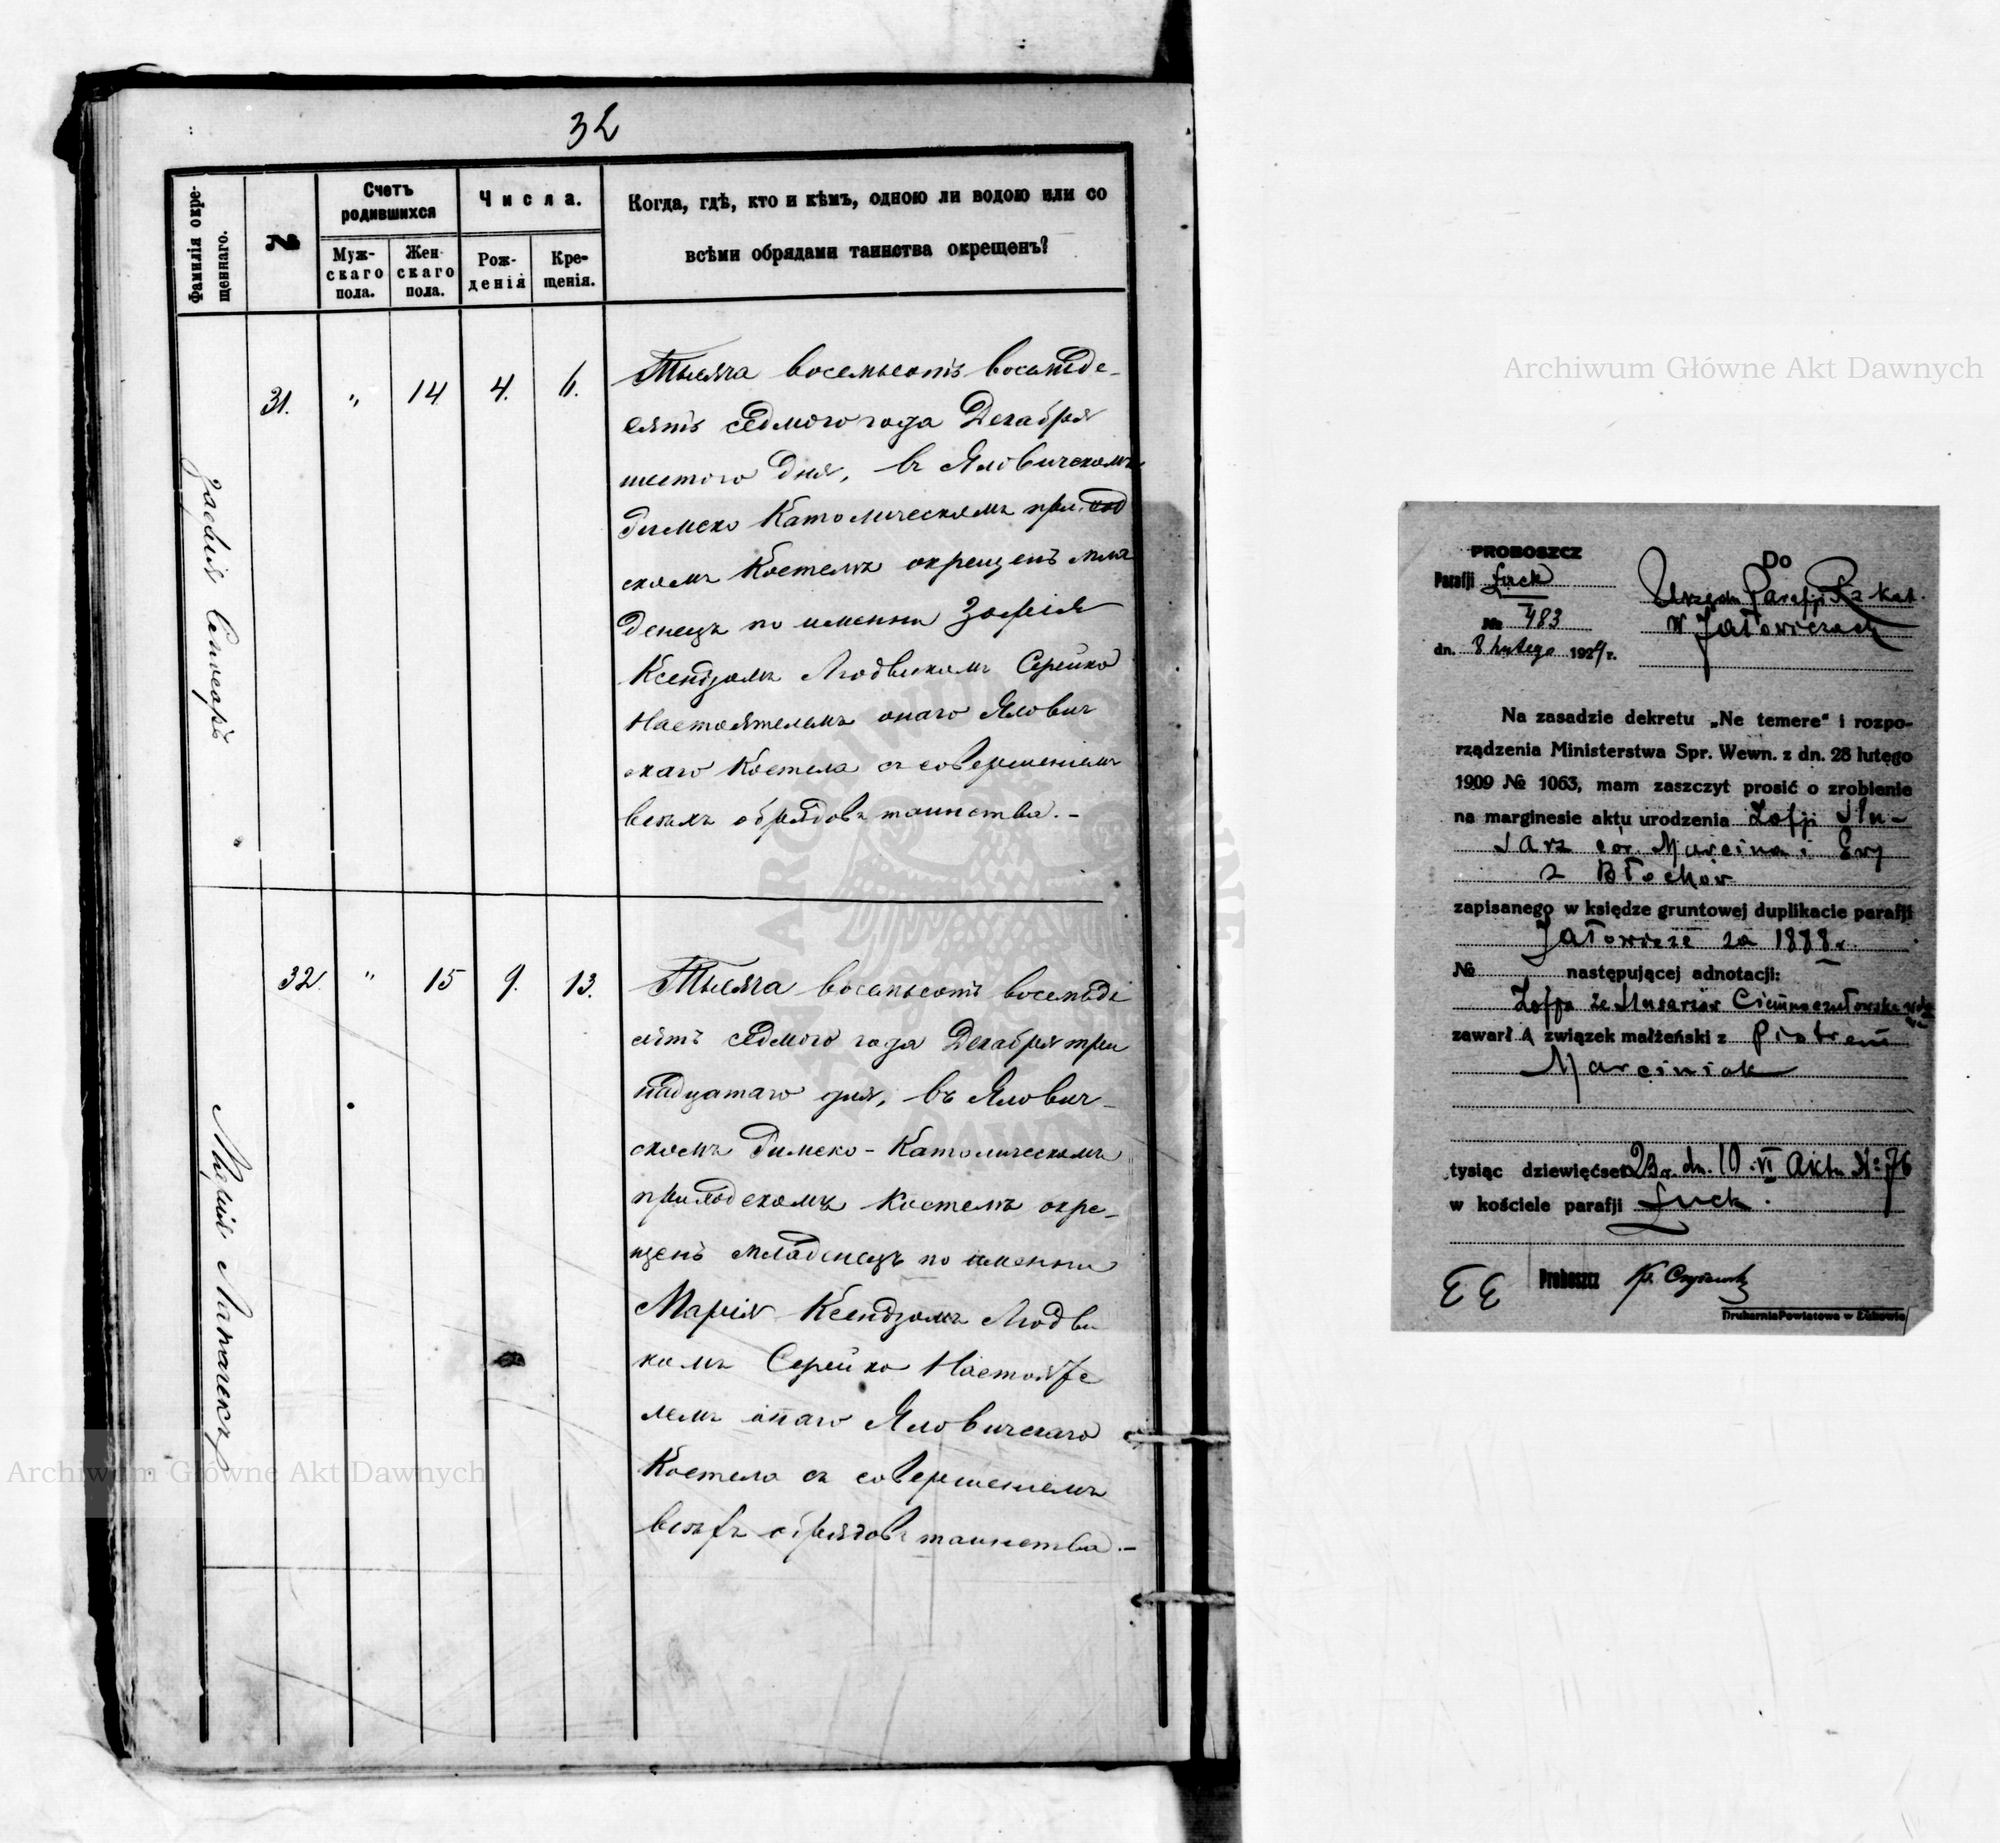 32
Фамилія окре-
щеннаго.
№
Счетъ
родившихся
Муж-
скаго
пола.
Жен-
скаго
пола.
Числа.
Рож-
денія
Кре-
щенія.
Когда, гдѣ, кто и кѣмъ, одною ли водою или со
всѣми обрядами таинства окрещенъ?
Зофія
31. " 14 4. 6.
Тысяча восемьсотъ восемьде-
сятъ седмого года Декабря
шестого дня, въ Яловичскомъ
Римско Католическомъ приход
скомъ Костелѣ окрещенъ мла
денецъ по имени Зофія
Ксендзомъ Людвикомъ Серейко
Настоятелемъ онаго Ялович
скаго Костела съ совершеніемъ
всѣхъ обрядовъ таинства.-
Марія
32. " 15 9. 13.
Тысяча восемьсотъ восемьде
сятъ седмого года Декабря три
надцатаго дня, въ Ялович-
скомъ Римско-Католическомъ
приходскомъ Костелѣ окре-
щенъ младенецъ по имени
Марія Ксендзомъ Людви
комъ Серейко Настояте
лемъ онаго Яловичскаго
Костела съ совершеніемъ
всѣхъ обрядовъ таинства.-
Archiwum Główne Akt Dawnych
Archiwum Główne Akt Dawnych
PROBOSZCZ
Parafji Łuck
№ 483
dn. 8 lutego 1924 r.
Do
Urzędu Parafji Rz kat.
w Jałowiczach
Na zasadzie dekretu „Ne temere" i rozpo-
rządzenia Ministerstwa Spr. Wewn. z dn. 28 lutego
1909 № 1063, mam zaszczyt prosić o zrobienie
na marginesie aktu urodzenia Zofji Ślu-
sarz cór. Marcina i Ewy
z Błochów
zapisanego w księdze gruntowej duplikacie parafji
Jałowicze za 1888 r.
№ następującej adnotacji:
Zofja ze Ślusarzów
zawarł a związek małżeński z Piotrem
Marciniak
tysiąc dziewięćset 23 r. dn. 10 VI Aktu №: 76
w kościele parafji Łuck.
Proboszcz Ks.
Drukarnia Powiatowa w Łukowie